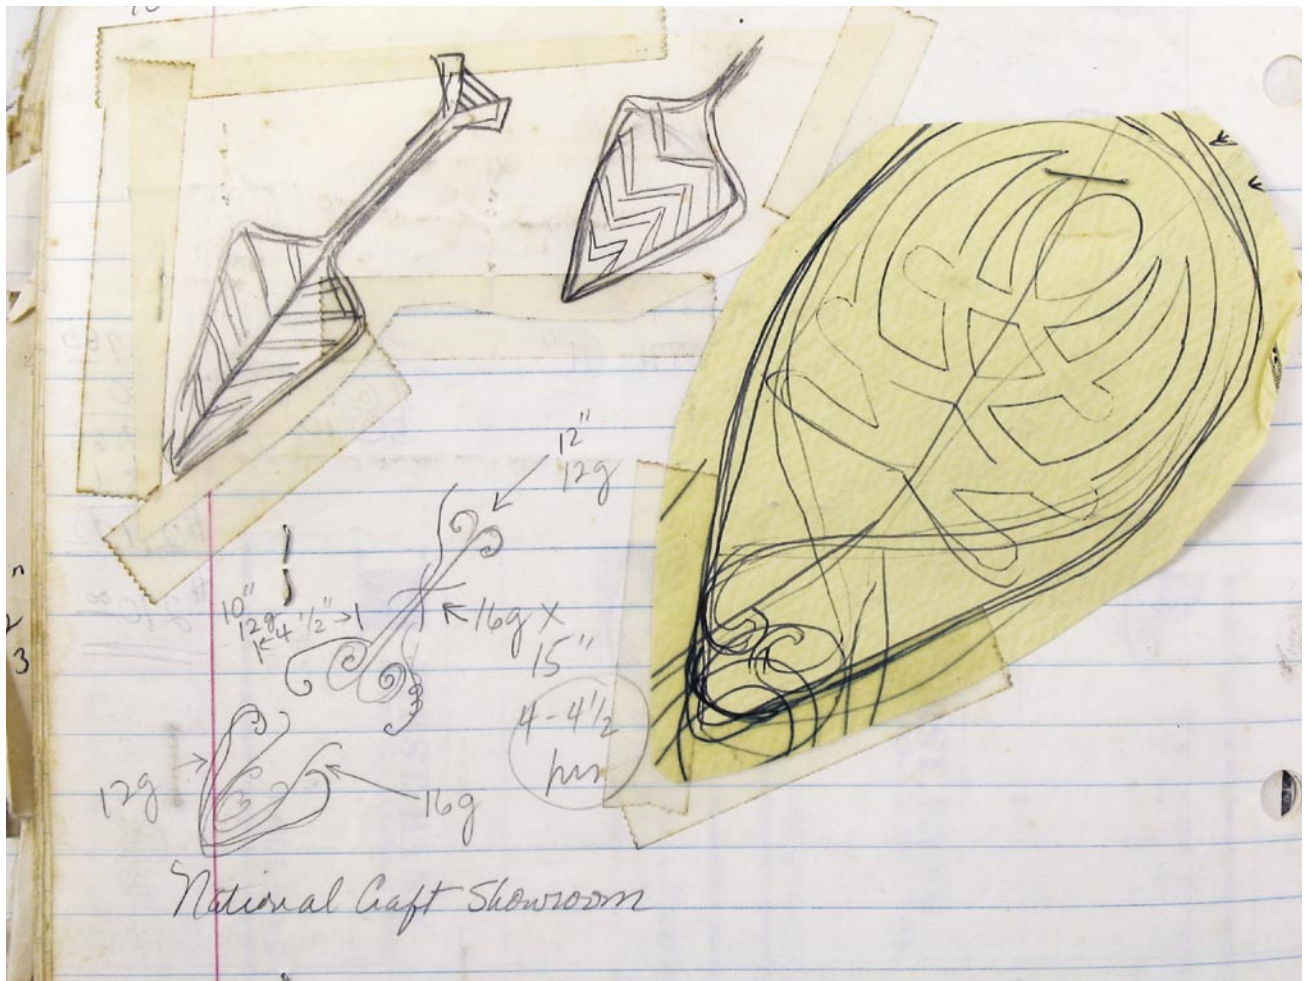 12"
12g
10"
12g
4 1/2"
16g x
15"
4-4 1/2
hrs
12g
16g
National Craft Showroom
n
2
3